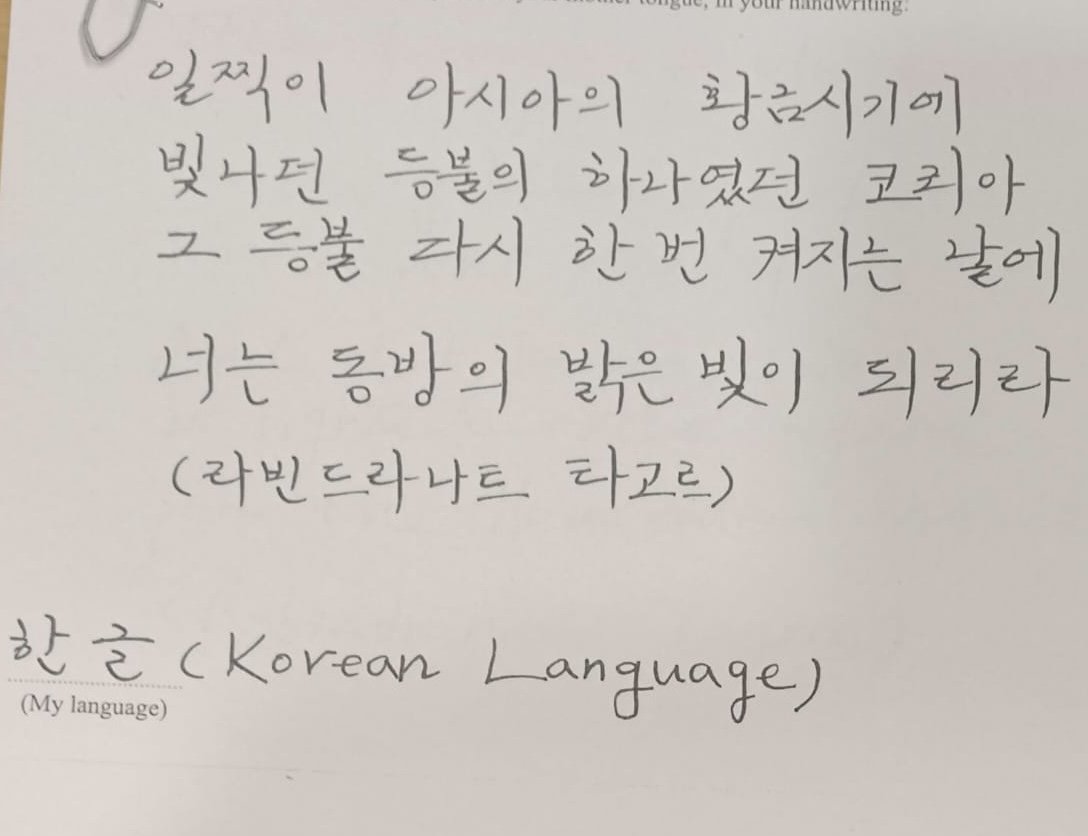 tongue, in your handwriting:
일찍이 아시아의 황금시기에
빛나던 등불의 하나였던 코리아
그 등불 다시 한 번 켜지는 날에
너는 동방의 밝은 빛이 되리라
(라빈드라나트 타고르)
한글 (Korean Language)
(My language)